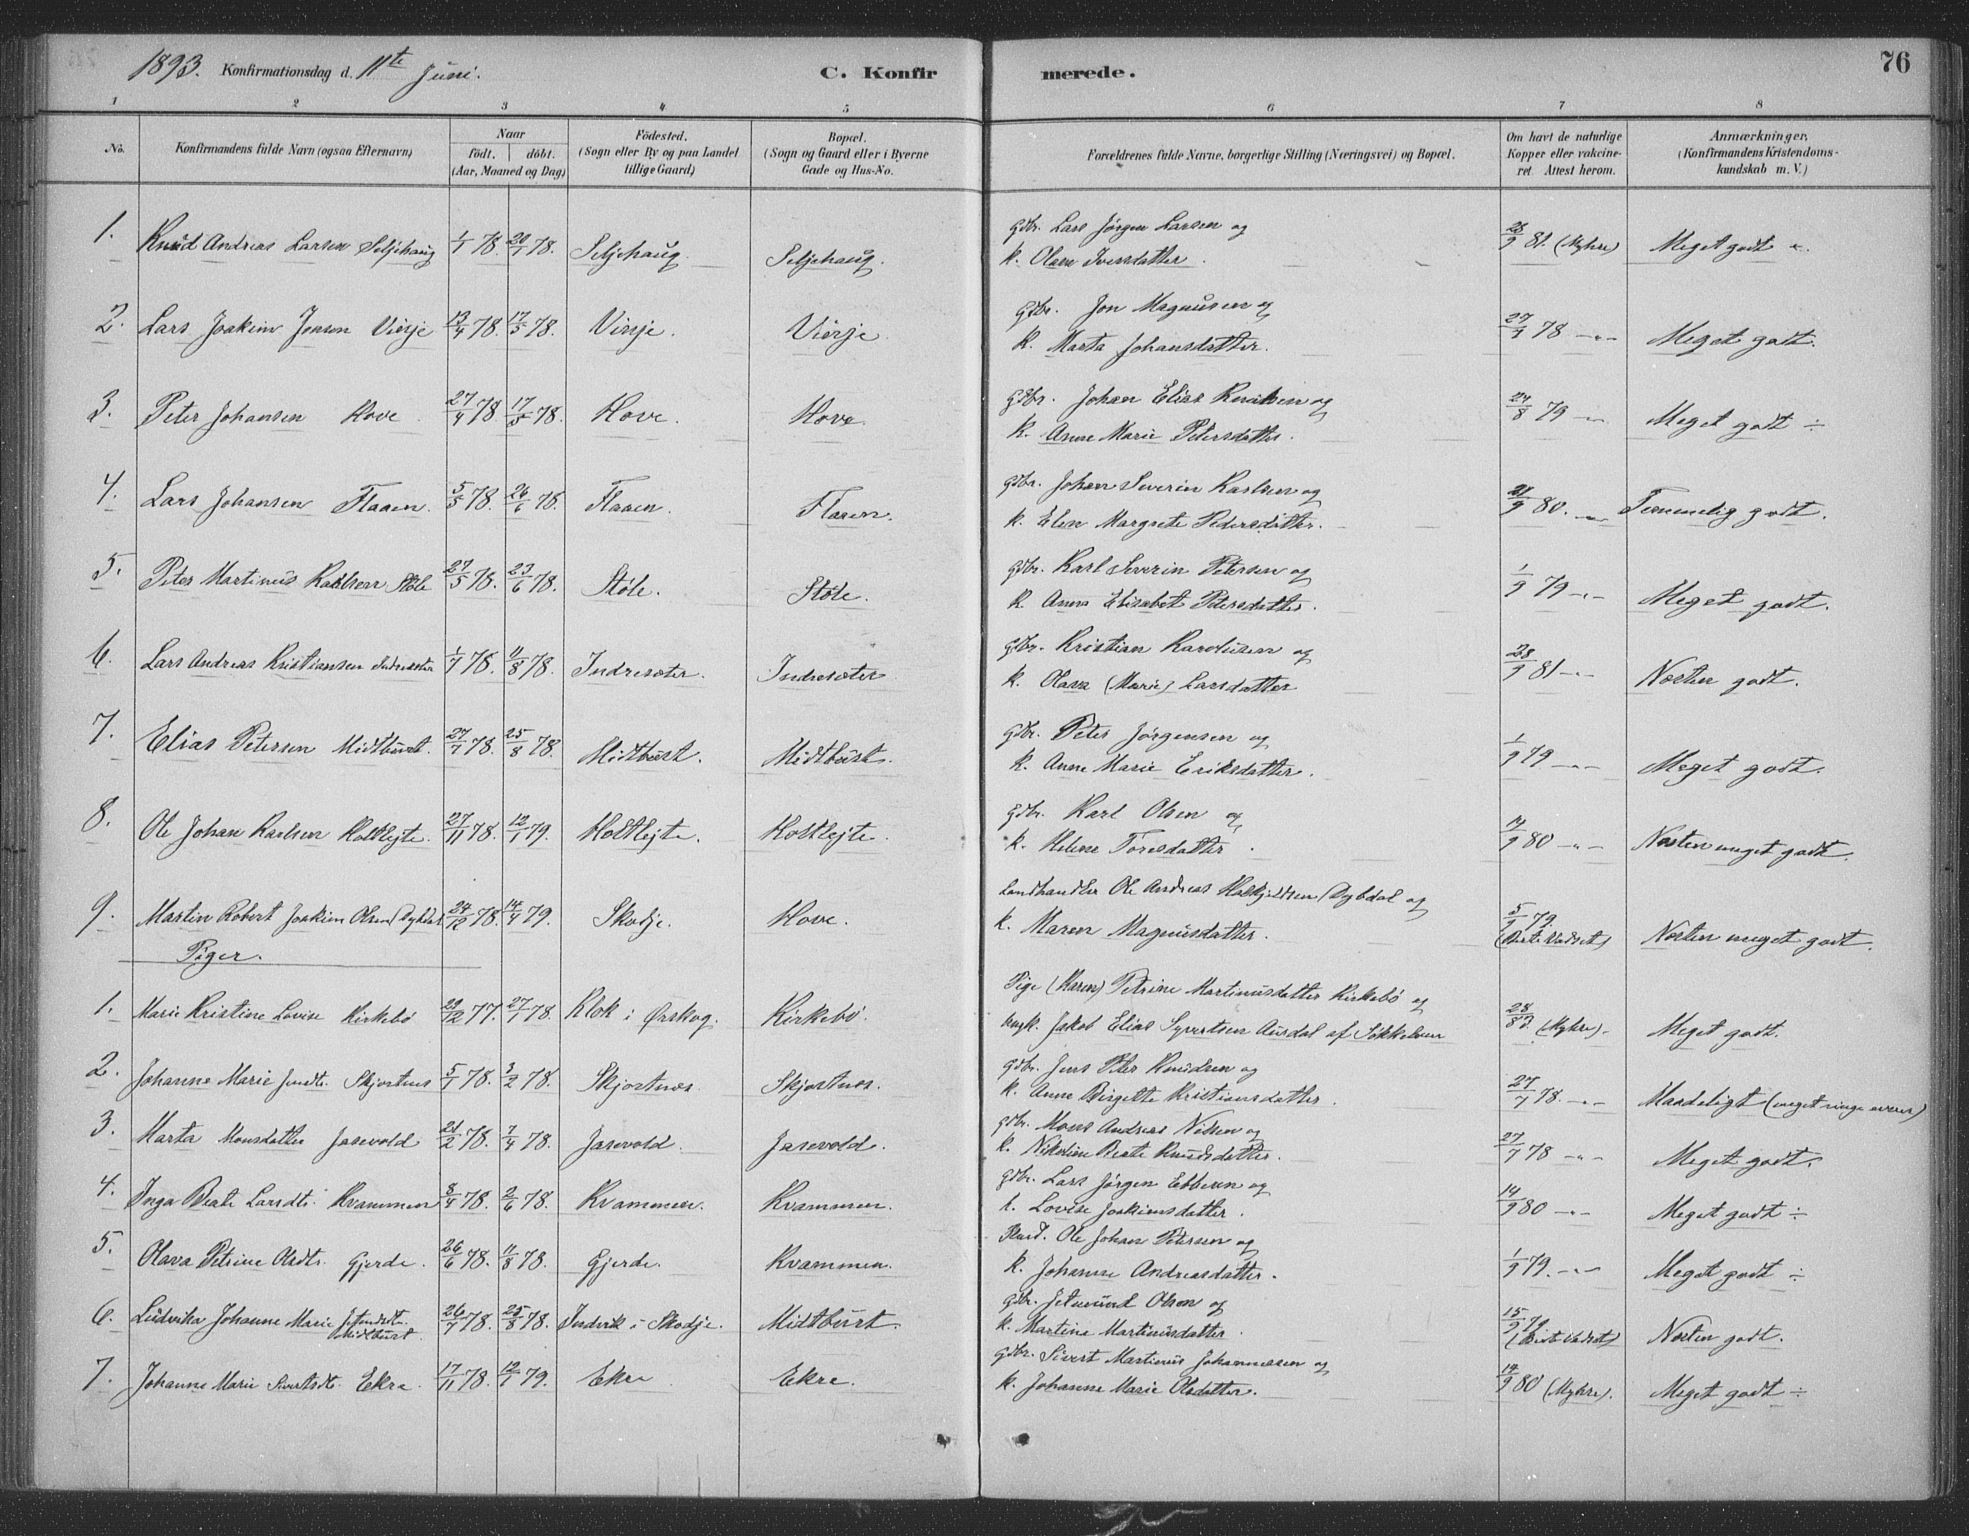 1893. Konfirmationsdag d. 11te Juni. C. Konfirmerede. 76
1 2 3 4 5 6 7 8
No. Konfirmandens fulde Navn (ogsaa Efternavn) Naar födt. döbt. (Aar, Maaned og Dag) Födested. (Sogn eller By og paa Landet tillige Gaard) Bopæl. (Sogn og Gaard eller i Byerne Gade og Hus-No. Forældrenes fulde Navne, borgerlige Stilling (Næringsvei) og Bopæl. Om havt de naturlige Kopper eller vakcineret. Attest herom. Anmærkninger. (Konfirmandens Kristendomskundskab m. V.)
1. Knud Andreas Larsen Seljehaug 1/1 78. 20/1 78. Seljehaug. Seljehaug. Gdbr. Lars Jørgen Larsen og
K. Olave Iversdatter. 28/9 81. (Myhre) Meget godt
2. Lars Joakim Jonsen Viirje 13/4 78. 17/5 78. Viirje. Viirje. Gdbr. Jon Magnusen og
K. Marta Johansdatter. 27/7 78 -"- Meget godt.
3. Peter Johansen Hove 27/4 78 17/5 78. Hove. Hove. Gdbr. Johan Elias og
K. Anne Marie Petersdatter. 24/8 79 -"- Meget godt ÷
4. Lars Johansen Flaaen. 5/5 78. 26/6 78. Flaaen. Flaaen. Gdbr. Johan Severin Karlsen og
K. Elen Margrete Pedersdatter. 21/9 80. -"- Temmelig godt.
5. Peter Martinus Karlsen Støle 27/5 78. 23/6 78. Støle. Støle. Gdbr. Karl Severin Petersen og
K. Anna Elisabet Petersdatter. 1/9 79 -"- Meget godt.
6. Lars Andreas Kristiansen Indresæter 1/7 78. 11/8 78. Indresæter. Indresæter Gdbr. Kristian og
K. Olava (Marie) Larsdatter 28/9 81 -"- Næsten godt.
7. Elias Petersen Midtbust. 27/7 78. 25/8 78. Midtbust. Midtbust. Gdbr. Peter Jørgensen og
K. Anne Marie Eriksdatter. 1/9 79 -"- Meget godt.
8. Ole Johan Karlsen Holtlejte. 27/11 78. 12/1 79. Holtlejte. Holtlejte. Gdbr. Karl Olsen og
K. Helene Toresdatter. 14/9 80 -"- Næsten meget godt.
9. Martin Robert Joakim Olsen Dybdal 24/12 78. 14/4 79. Skodje. Hove. Landhandler Ole Andreas Dybdal og
K. Maren Magnusdatter. 5/9 79. (Berte Vadset) Næsten meget godt.
Piger.
1. Marie Kristine Lovise Kirkebø 29/12 77. 27/1 78. Klok i Ørskog. Kirkebø. Pige (Karen) Petrine Martinusdatter Kirkebø og
Ungk. Jakob Elias Syvertsen Ausdal af Søkkelven 28/8 (Myhre). Meget godt.
2. Johanne Marie Jensdtr. Skjortnes 5/1 78. 3/2 78. Skjortnæs. Skjortnæs. Gdbr. Jens Peter Knudsen og
K. Anne Birgette Kristiansdatter. 27/7 78. -"- Maadeligt (meget ringe evner)
3. Marta Monsdatter Jasevold 21/2 78. 7/4 78. Jasevold. Jasevold. Gdbr. Mons Andreas Nilsen og
K. Nikoline Beate Knudsdatter. 27/7 78 -"- Meget godt.
4. Inga Beate Larsdtr. Kvammen 8/4 78. 2/6 78. Kvammen. Kvammen. Gdbr. Lars Jørgen Ebbesen og
K. Lovise Joakimsdatter. 14/9 80 -"- Meget godt ÷
5. Olava Petrine Olsdtr. Gjerde. 26/6 78. 11/8 78. Gjerde. Kvammen. Husd. Ole Johan Petersen og
K. Johanne Andreasdatter. 1/9 79. -"- Meget godt ÷
6. Ludvika Johanne Marie Jetmundsdtr. Midtbust. 26/7 78. 25/8 78. Indvik i Skodje. Midtbust. Gdbr. Jetmund Olsen og
K. Martine Martinusdatter. 15/9 79 (Berte Vadset) Næsten godt.
7. Johanne Marie Sivertsdtr. Ekre. 17/11 78. 12/1 79. Ekre Ekre. Gdbr. Sivert Martinus Johannessen og
K. Johanne Marie Olsdatter. 14/9 80 (Myhre). Meget godt ÷